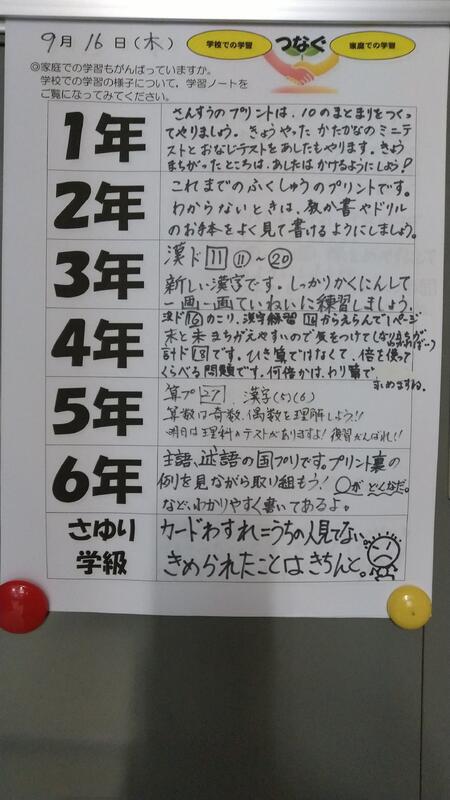 9月16日(木)
学校での学習
つなぐ
家庭での学習
◎家庭での学習もがんばっていますか。
学校での学習の様子について、学習ノートを
ご覧になってみてください。
1年
さんすうのプリントは、10のまとまりをつくっ
てやりましょう。きょうやったかたかなのミニテ
ストとおなじテストをあしたもやります。きょう
まちがったところは、あしたはかけるようにしよう!
2年
これまでのふくしゅうのプリントです。
わからないときは、教か書やドリル
のお手本をよく見て書けるようにしましょう。
3年
漢ド 11 ⑪~⑳
新しい漢字です。しっかりかくにんして
一画一画ていねいに練習しましょう。
4年
漢ド⑯のこり、漢字練習 からえらんで1ページ
末と未まちがえやすいので気をつけて
計ド 13 です。ひき算ではなくて、倍を使って
くらべる問題です。何倍かは、わり算で
求めますね。
5年
算プ 27 、漢字(5)(6)
算数は奇数、偶数を理解しよう!!
明日は理科のテストがありますよ!復習がんばれ!!
6年
主語、述語の国プリです。プリント裏の
例を見ながら取り組もう! 〇が どうなだ。
など、わかりやすく書いてあるよ。
さゆり
学級
カードわすれ=うちの人見てない。
きめられたことはきちんと。